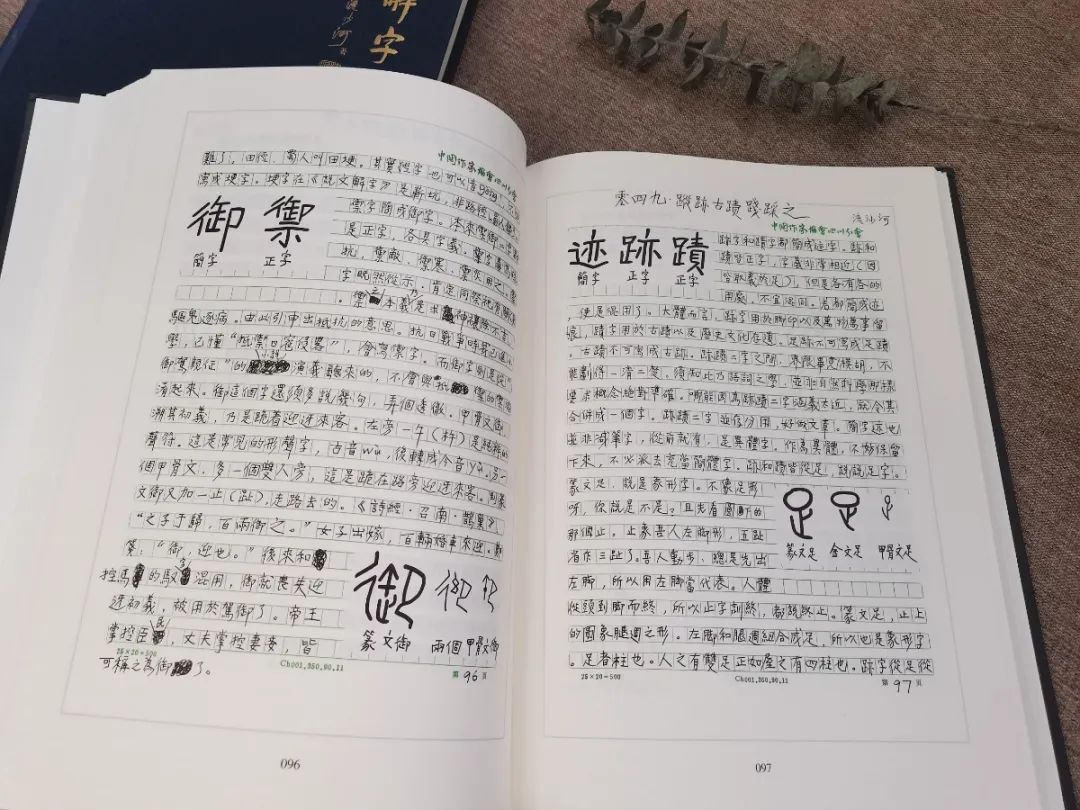 解字
流沙河 著
中國作家協會四川分會
難了。田徑，蜀人叫田埂。其實徑字也可以音gěng，
寫成埂字。埂字在《說文解字》是
御 禦
簡字 正字
禦字簡成御字。本來禦御二字
是正字，各具字義。禦字屬
抗，禦敵、禦寒、禦
字昭然從示，肯定同祭祀有關
。禦之本義乃是求神禳除不
驅鬼逐病。由此引申出抵抗的意思。抗日戰爭時我已
學，已懂“抵禦日寇侵畧”，會寫禦字。而御字則是從“
御駕親征”的小說演義聽來的，不會與抵禦的禦
淆起來。御這個字還須多說幾句，弄個透徹。甲骨文御，
溯其初義，乃是跪着迎迓來客。左旁一午（杵）是
聲符。這是常見的形聲字，古音wǔ，後轉成今音yù。另一
個甲骨文，多一個雙人旁，這是跪在路旁迎迓來客。到篆
文御又加一止（趾），走路去的。《詩經·召南·鵲巢》，
“之子于歸，百兩御之。”女子出嫁，百輛婚車來迎。鄭
箋：“御，迎也。”後來和
控馬的馭字混用，御就喪失迎
迓初義，被用於駕御了。帝王
掌控臣民，丈夫掌控妻妾，皆
可稱之為御了。
篆文御 兩個甲骨文御
25×20=500
Ch001.350.90.11
第 96 頁
096
零四九·蹤跡古蹟踐踩之
流沙河
中國作家協會四川分會
迹 跡 蹟
簡字 正字 正字
跡字和蹟字都簡成迹字。跡和
蹟皆正字，字義非常相近（因
皆取義於足），但是各有各的
用處，不宜混同。若都簡成迹，
，使是從用了。大體而言，跡字用於脚印以及萬物萬事留
痕，蹟字用於古蹟以及歷史文化在遺。足跡不可寫成足蹟
，古蹟不可寫成古跡。跡蹟二字之間，界限畢竟模糊，不
能劃得一清二楚，須知此乃語詞之學，並非自然科學那樣
要求概念絕對準確。哪能因為跡蹟二字涵義太近，就令其
合併成一個字。跡蹟二字並存分用，好做文章。簡字迹也
並非減筆字，從前就有，是異體字。作為異體，不妨保留
下來，不必派去充當簡體字。跡和蹟皆從足，說說足字。
篆文足，就是象形字。不像足形
呀，你說是不是？且先看圖斷的
那個止，止象吾人左脚形，五趾
省作三趾了。吾人動步，總是先出
左脚，所以用左脚當代表。人體
從頭到脚而終，所以止字訓終，都說終止。篆文足，止上
的圓象腿週之形。左脚和腿週組合成足，所以也是象形字
。足者柱也。人之有雙足正如屋之有四柱也。跡字從足從
篆文足 金文足 甲骨文足
25×20=500
Ch001.350.90.11
第 97 頁
097